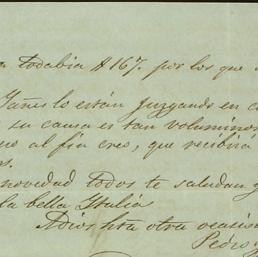 todabia $167. por los que
Yañes lo están juzgando en c
su causa es tan voluminos
al fin creo, que recibirá
s.
novedad todos te saludan y
la bella Italia
Adios hta otra ocasio
Pedro